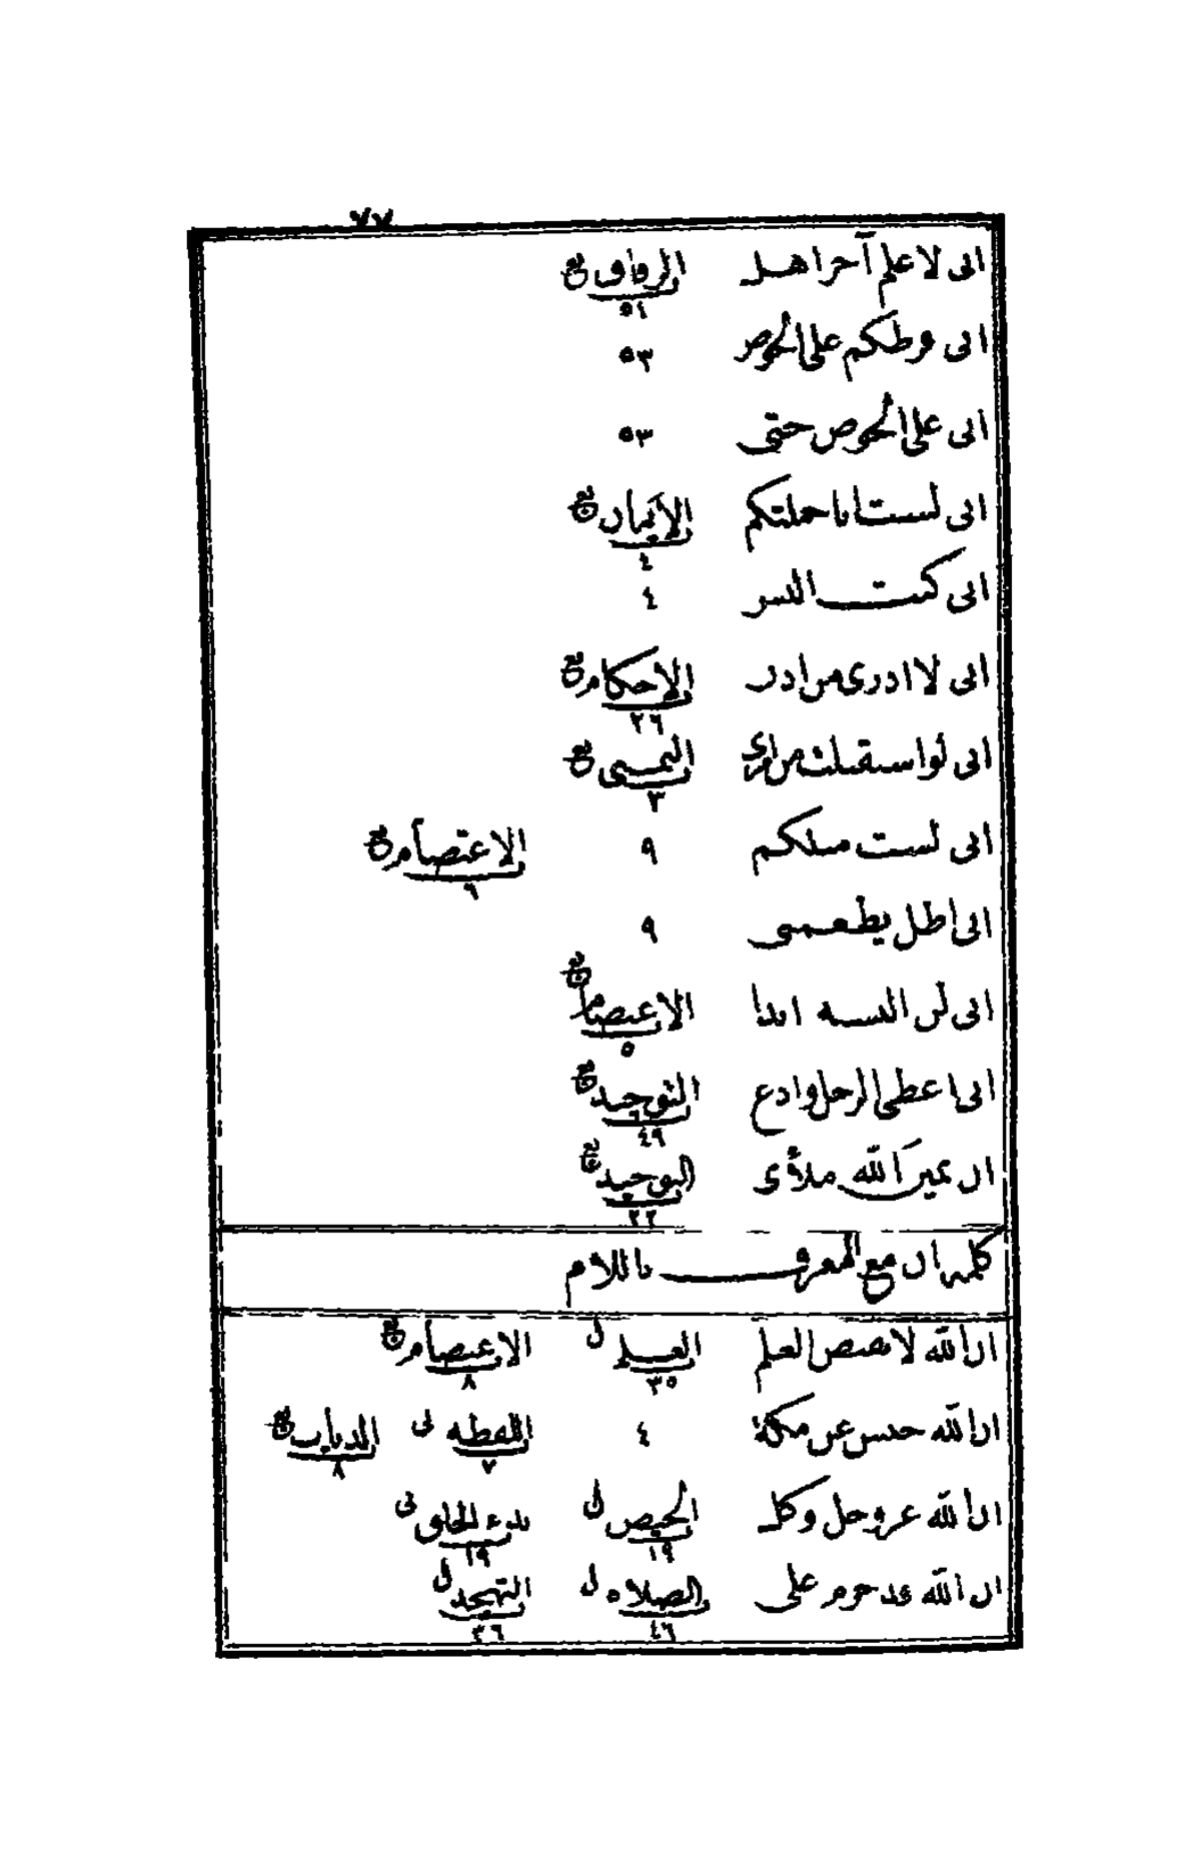 ٧٧
انى لا علم آخر اهل الرقاق ع
٥١
انى فرطكم على الحوض ٥٣
انى على الحوض حتى ٥٣
انى لست انا حملتكم الأيمان ع
٤
انى كنت البس ٤
انى لا ادرى من اذن الاحكام ع
٢٦
انى لو استقبلت من امرى التمنى ع
٣
انى لست مثلكم ٩ الاعتصام ع
٦
انى اظل يطعمنى ٩
انى لن البسه ابدا الاعتصام ع
٥
انى اعطى الرجل وادع التوحيد ع
٤٩
ان يمين الله ملأى التوحيد ع
٢٢
كلمة ان مع المعرف باللام
ان الله لا يقبض العلم العلم ل الاعتصام ع
٣٥ ٨
ان الله حبس عن مكة ٤ اللقطة الديات ع
٧ ٨
ان الله عز وجل وكل الحيض بدء الخلق
١٩ ١٩
ان الله قد حرم على الصلاة ل التهجد ل
٤٦ ٣٦